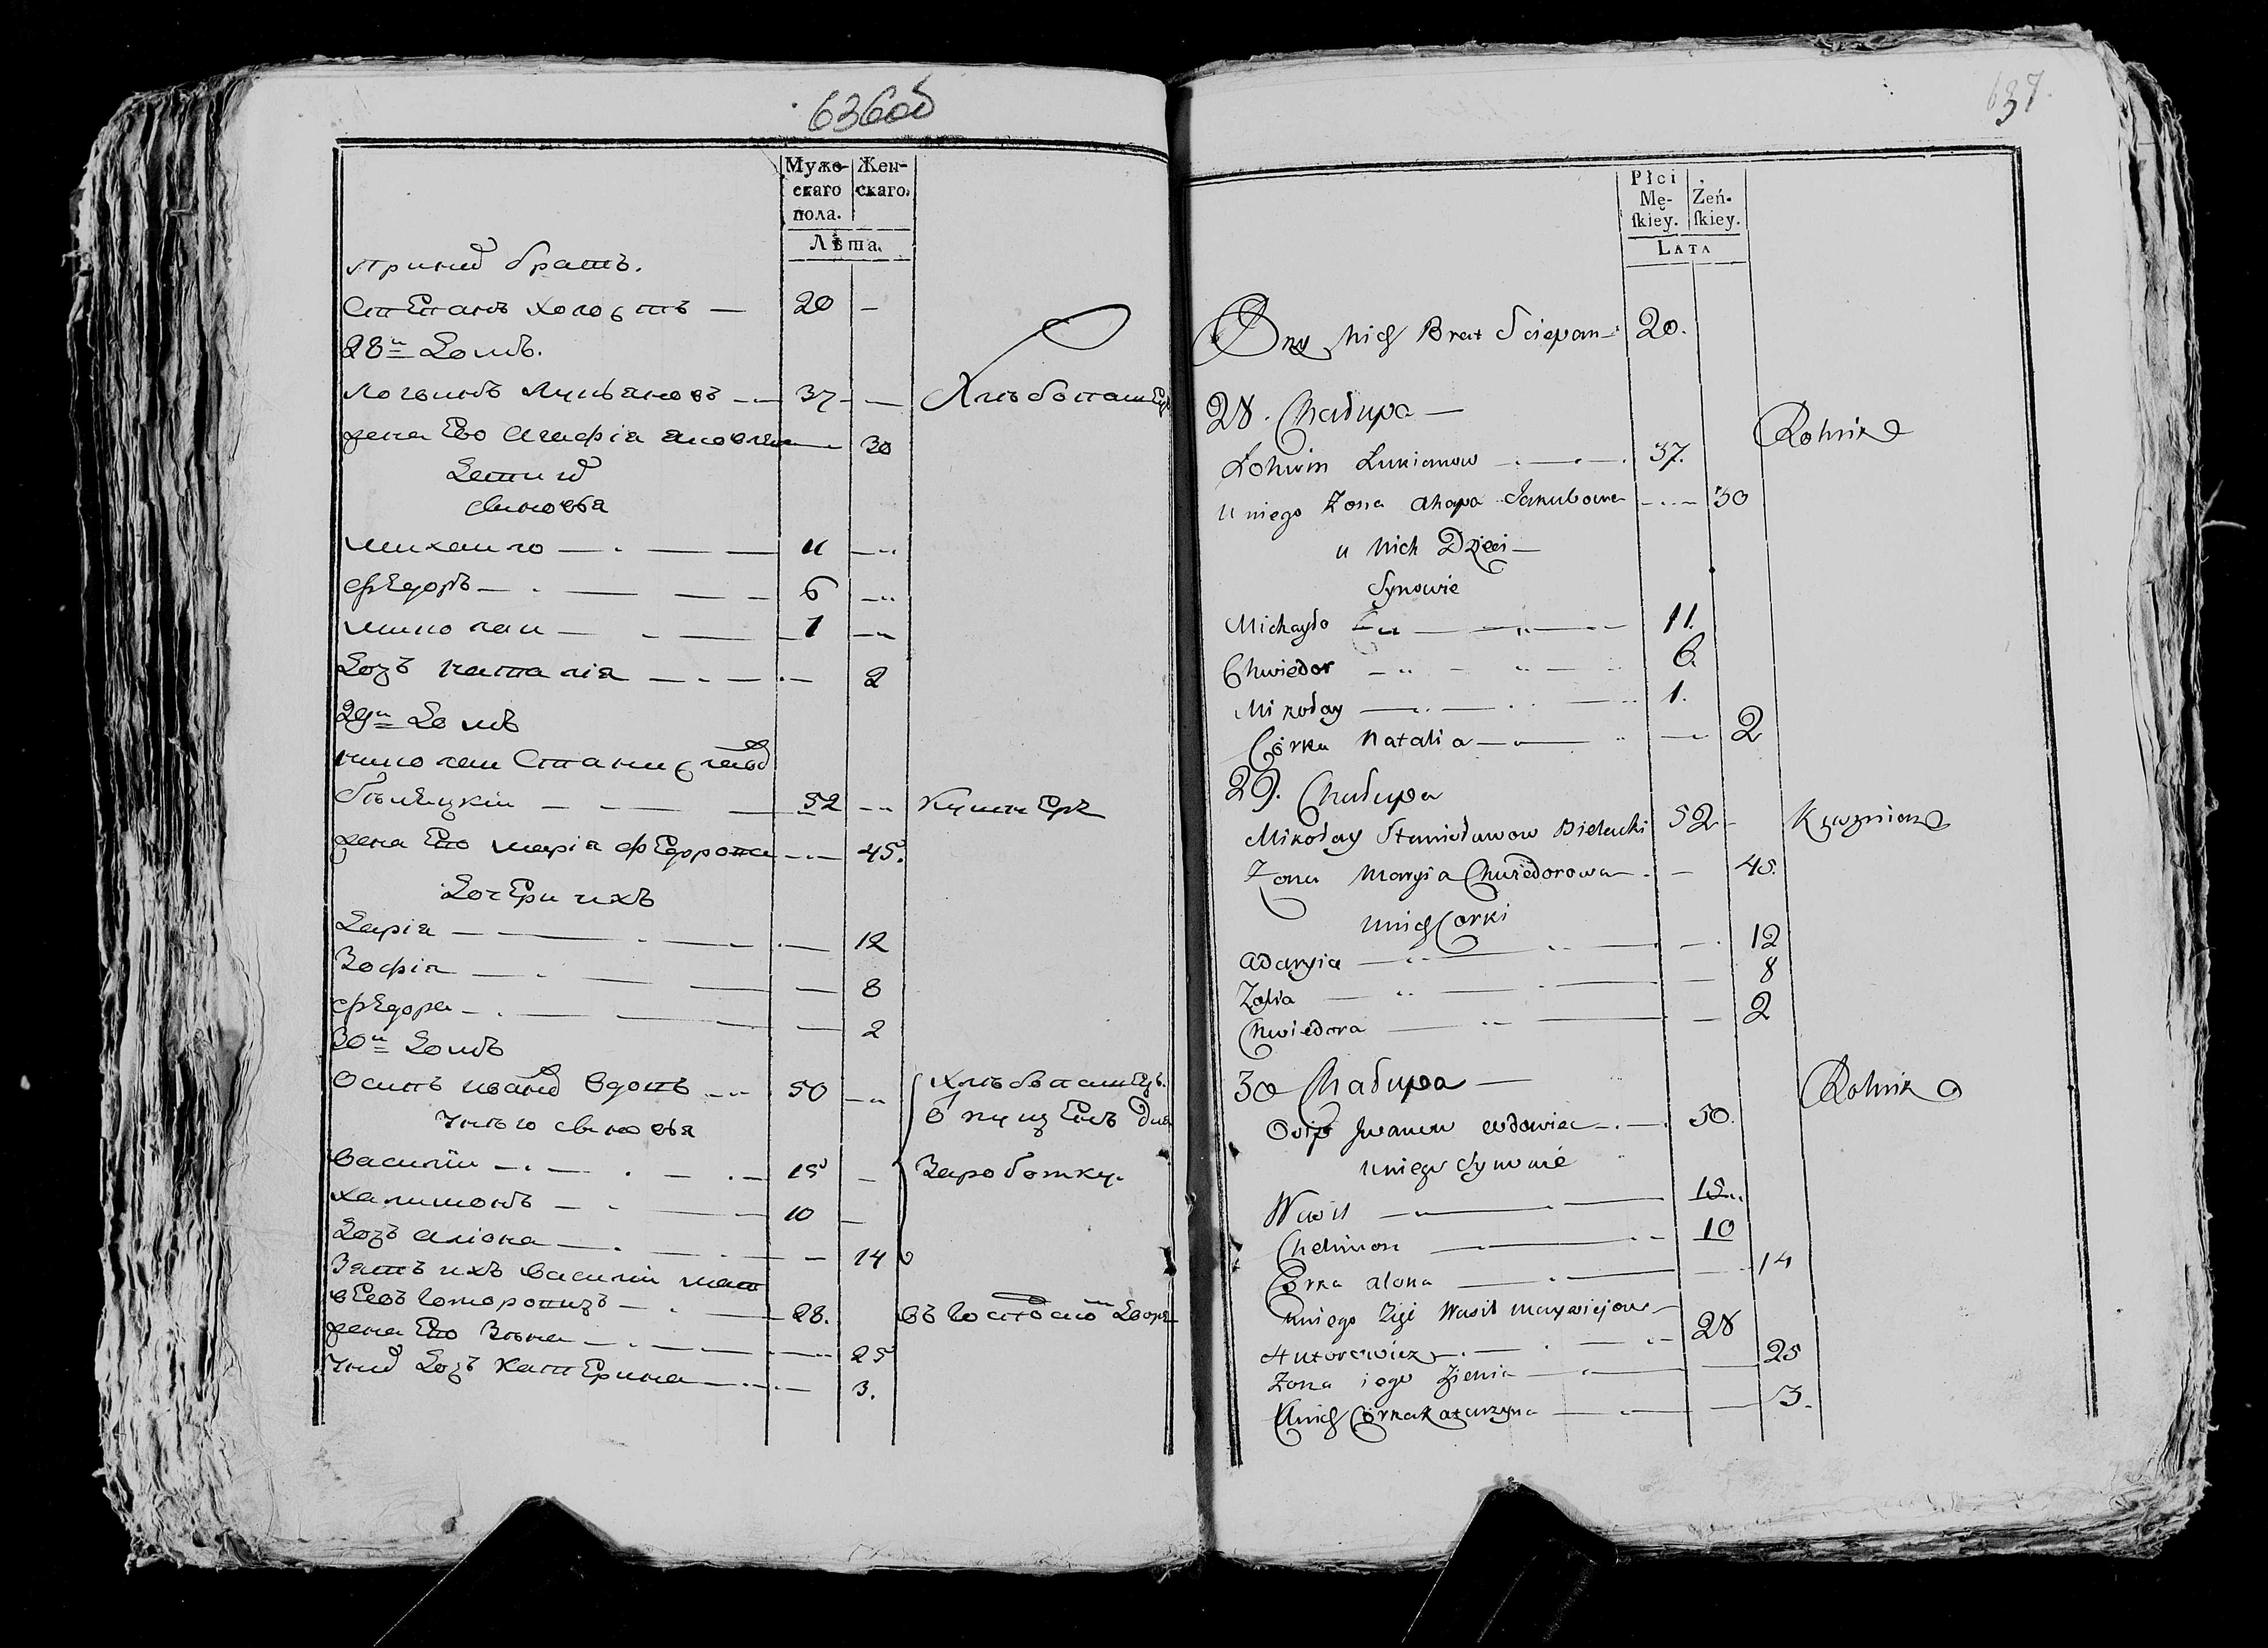 636об
Муже- Жен-
скаго скаго.
пола.
Лѣта.
При нихъ братъ.
Степанъ холостъ — 20 —
28й Домъ.
Логвинъ Лукьяновъ — 37 — Хлѣбопашецъ
жена Ево Агафія Яковлева — 30
Дети ихъ
сыновья
Михайло — 11 —
Федоръ — 6 —
Миколай — 1 —
Дочь Наталія — 2
29й Домъ
Николай Станиславовъ
Бѣлецкій — 52 — Кушнеръ
жена Ево Марія Федорова — 45.
Дочери ихъ
Дарія — 12
Зофія — 8
Федора — 2
30й Домъ
Осипъ Ивановъ вдовъ — 50 — Хлѣбопашецъ.
У него сыновья
Василій — 15 — Заработку.
Халимонъ — 10 —
Дочь Аліона — 14
Зять ихъ Василій Мат
вѣевъ — 28.
жена Ево Зѣня — 25
У нихъ Дочь Катерина — 3.
637.
Płci Żeń-
Mę- ſkiey.
ſkiey.
LATA
Przy nich Brat Sciepan — 20.
28. Chałupa —
Łohwin Łukianow — 37. Rolnik
u niego Żona Ahapa Jakubowa — 30
u nich Dzieci —
Synowie
Michayło — 11.
Chwiedor — 6.
Mikołay — 1.
Córka Natalia — 2
29. Chałupa
Mikołay Stanisławow Bielecki 52 —
Żona Marysia Chwiedorowa — 45.
u nich Corki
Adarysia — 12
Zofia — 8
Chwiedora — 2
30 Chałupa — Rolnik
Osip Iwanow wdowiec — 50.
u niego Synowie
Wasil — 15.
Chelimon — 10
Córka Alona — 14
u niego Zięć Wasil Maywiejow —
28
Żona iego Zienia — 25
U nich Córka Katarzyna — 3.